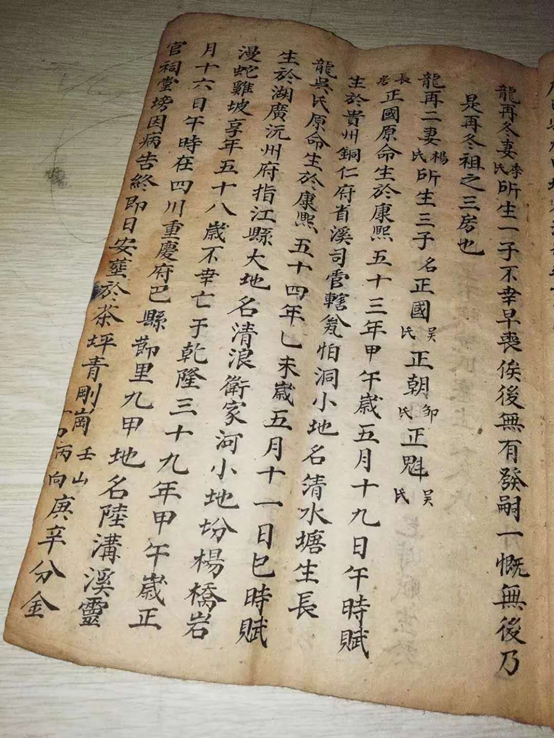 龍再冬妻李氏所生一子不幸早喪俟後無有發嗣一慨無後乃
是再冬祖之三房也
龍再二妻楊氏所生三子名正國吳氏正朝鄒氏正魁吳氏
長房正國原命生於康熙五十三年甲午歲五月十九日午時賦
生於貴州銅仁府省溪司管轄瓮怕洞小地名清水塘生長
龍吳氏原命生於康熙五十四年乙未歲五月十一日巳時賦
生於湖廣沅州府指江縣大地名清浪衛家河小地坋楊橋岩
漫蛇雞坡享年五十八歲不幸亡于乾隆三十九年甲午歲正
月十六日午時在四川重慶府巴縣節里九甲地名陸溝溪靈
官祠堂塝因病告終即日安塟於茶坪青剛崗壬山丙向庚辛分金